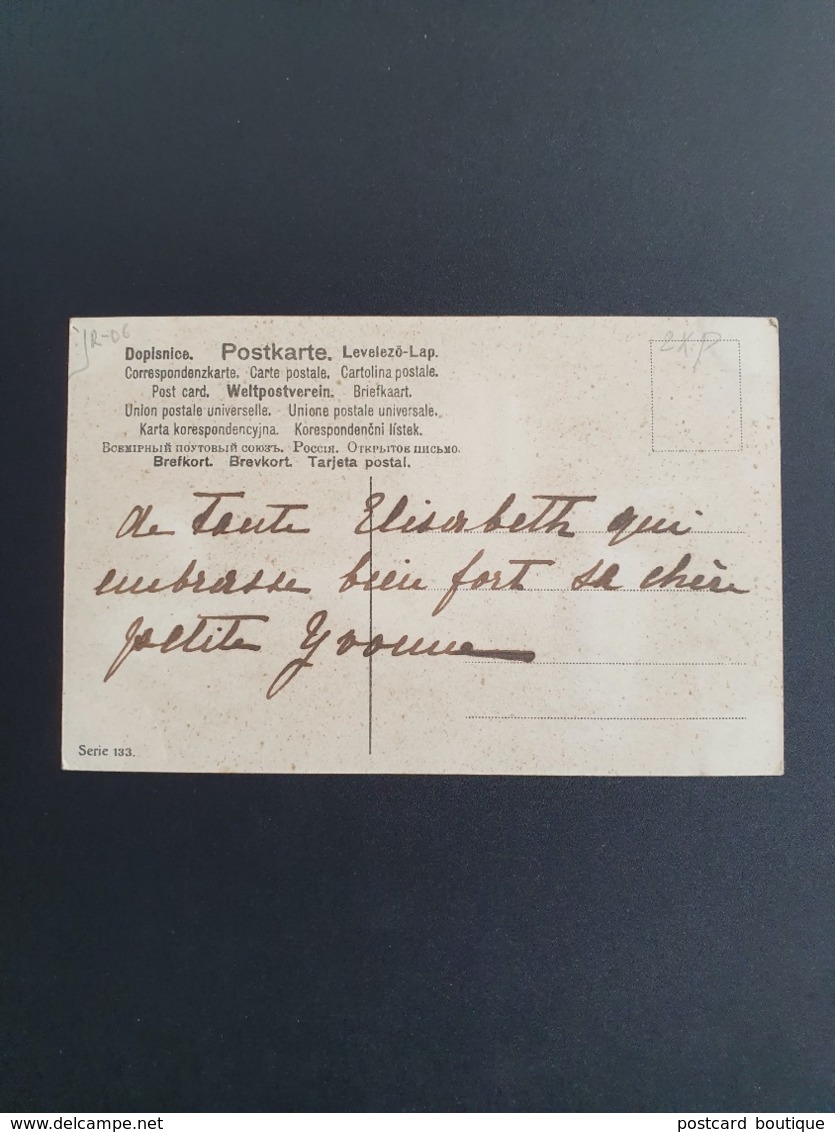 JR-06
Dopisnice. Postkarte. Levelező-Lap.
Correspondenzkarte. Carte postale. Cartolina postale.
Post card. Weltpostverein. Briefkaart.
Union postale universelle. Unione postale universale.
Karta korespondencyjna. Korespondenční lístek.
Всемірный почтовый союзъ. Россія. Открытое письмо.
Brefkort. Brevkort. Tarjeta postal.
de Tante Elisabeth qui
embrasse bien fort sa chère
petite Yvonne
Serie 133.
delcampe.net
postcard boutique